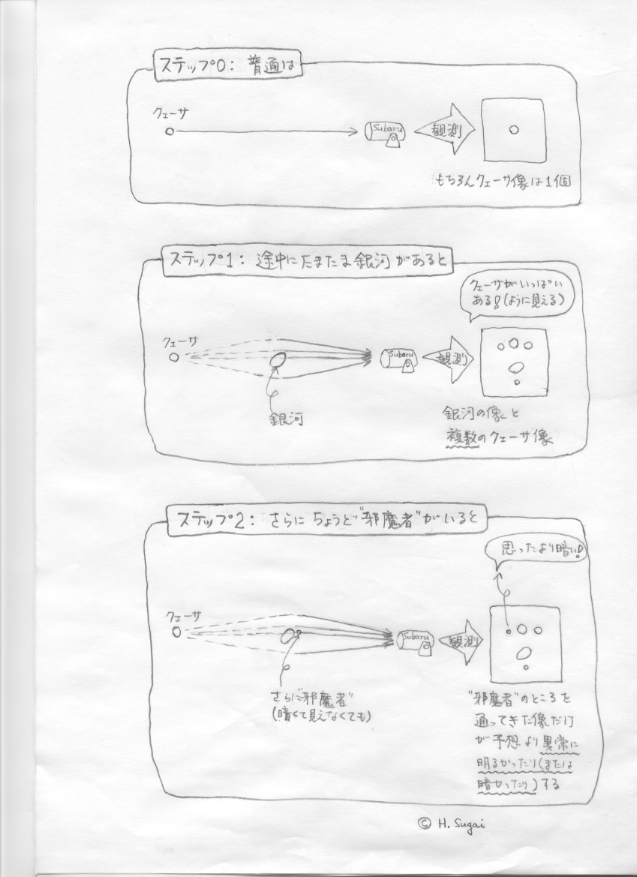 ステップ0: 普通は
クェーサ
Subaru
観測
もちろんクェーサ像は1個
ステップ1: 途中にたまたま銀河があると
クェーサがいっぱい
ある!(ように見える)
クェーサ
Subaru
観測
銀河
銀河の像と
複数のクェーサ像
ステップ2: さらにちょうど"邪魔者"がいると
思ったより暗い!
クェーサ
Subaru
観測
さらに邪魔者
(暗くて見えなくても)
"邪魔者"のところを
通ってきた像だけ
が予想より異常に
明るかったり(または
暗かったり)する
© H. Sugai